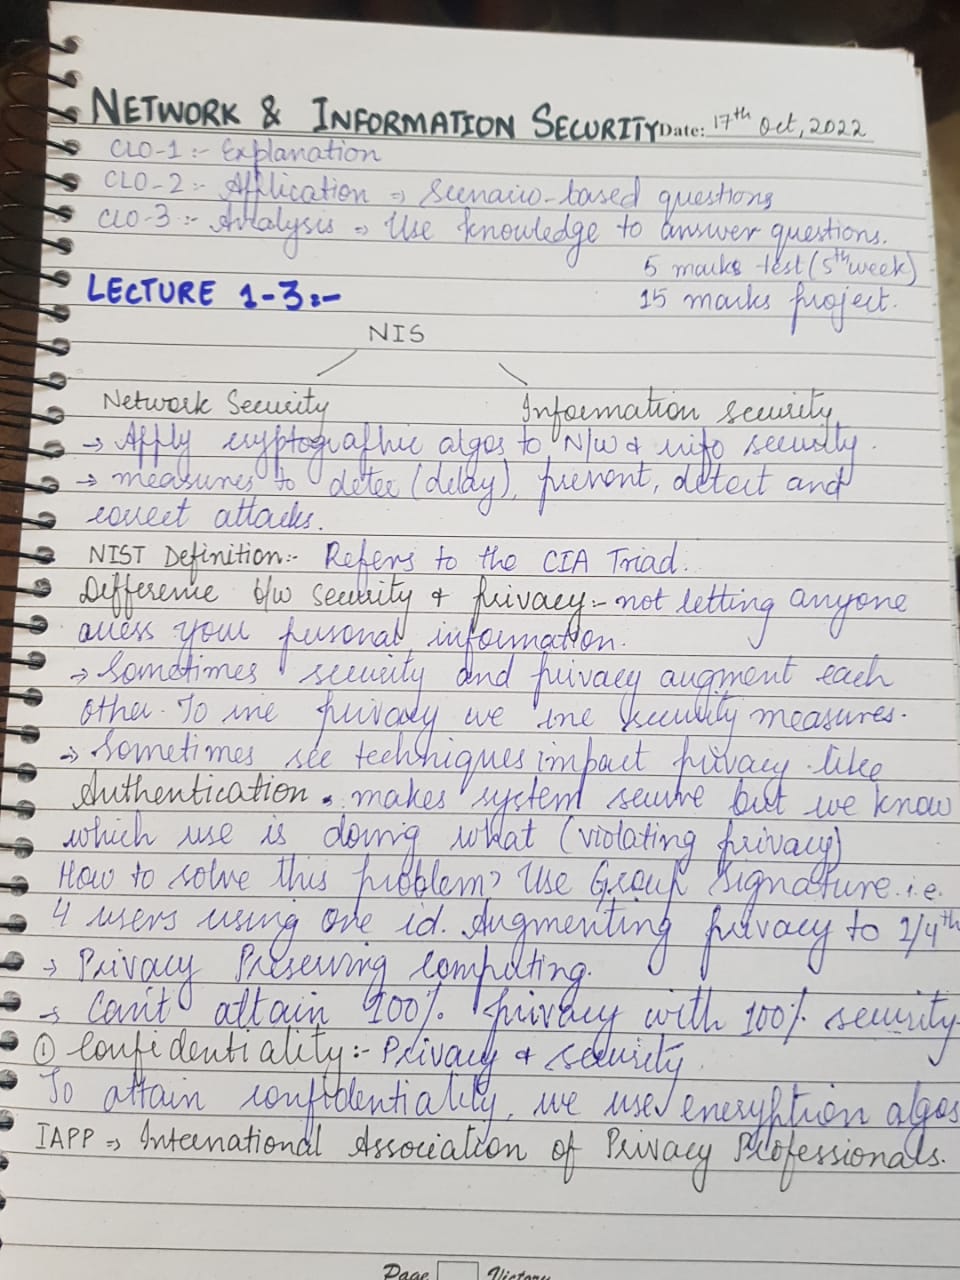 NETWORK & INFORMATION SECURITY Date: 17th Oct, 2022
CLO-1 :- Explanation
CLO-2 :- Application => Scenario-based questions
CLO-3 :- Analysis => Use knowledge to answer questions.
5 marks test (5th week)
LECTURE 1-3:- 15 marks project.
NIS
Network Security Information security
→ Apply cryptographic algos to N/w & info security.
→ measures to deter (delay), prevent, detect and
correct attacks.
NIST Definition:- Refers to the CIA Triad.
Difference b/w security & privacy:- not letting anyone
access your personal information.
→ Sometimes security and privacy augment each
other. To inc privacy we inc security measures.
→ Sometimes sec techniques impact privacy like
Authentication. makes system secure but we know
which use is doing what (violating privacy)
How to solve this problem? Use Group Signature. i.e.
4 users using one id. Augmenting privacy to 1/4th
→ Privacy Preserving Computing.
→ Can't attain 100% privacy with 100% security
① Confidentiality:- Privacy & security.
To attain confidentiality, we use encryption algos
IAPP => International Association of Privacy Professionals.
Page Victory